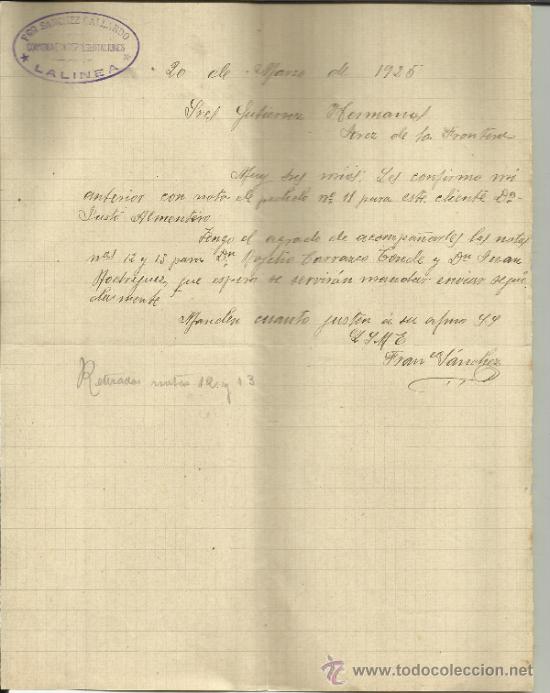 FCO SANCHEZ GALLARDO
COMISIONES Y REPRESENTACIONES
LA LINEA
20 de Marzo de 1925
Sres Gutierrez Hermanos
Jerez de la Frontera
Muy sres mios: Les confirmo mi
anterior con nota de pedido nº 11 para este cliente Dn
Justo Almentero
Tengo el agrado de acompañarles las notas
nos 12 y 13 para Dn Rogelio Carrasco Conde y Dn Juan
Rodriguez, que espero se servirán mandar enviar segui
damente
Manden cuanto gusten a su afmo SS
Q S M E
Franco Sánchez
Retiradas notas 12 y 13
www.todocoleccion.net